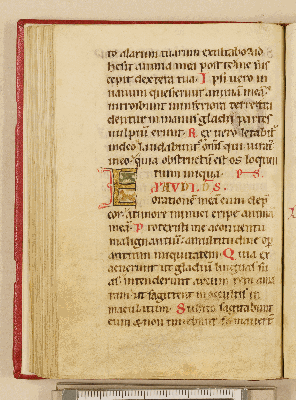 to alarum tuarum exultabo ad
hesit anima mea post te me sus
cepit dextera tua. Ipsi vero in
vanum quesierunt animā meā
introibunt in inferiora terre tra
dentur in manus gladii partes
vulpiū erunt. Rex vero letabit
in deo laudabunt omēs qui iurāt
in eo quia obstructū est os loquen
tium iniqua. PS.
EXAUDI DS
orationē meam cum dep
cor a timore inimici eripe animā
meā. Protexisti me a conventu
malignantiū a multitudine op
antium iniquitatem. Quia ex
acuerunt ut gladiū linguas su
as intenderunt arcum rem ama
ram ut sagittent in occultis in
maculatum. Subito sagittabunt
eum et non timebunt firmaverūt